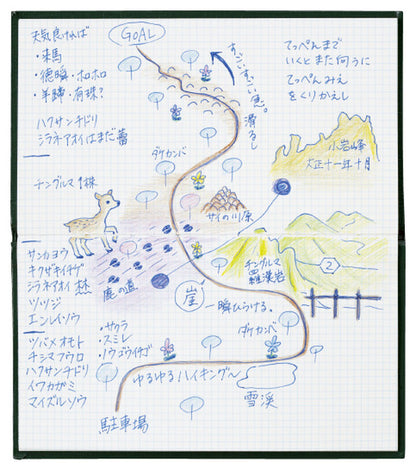 天気良ければ
・来馬
・徳瞬・ホロホロ
・羊蹄・有珠?
ハクサンチドリ
シラネアオイはまだ蕾
チングルマ1株
サンカヨウ
キクザキイチゲ
シラネアオイ
ツツジ
エンレイソウ
ツバメオモト
チシマフウロ
ハクサンチドリ
イワカガミ
マイズルソウ
・サクラ
・スミレ
・ノウゴウイチゴ
GOAL
すっごいすっごい急。
滑るし
てっぺんまで
いくとまた向うに
てっぺんみえ
をくりかえし
小岩峰
大正十一年十月
ダケカンバ
サイの川原
チングルマ
羅漢岩
2
鹿の道
崖
一瞬ひらける。
ダケカンバ
ゆるゆるハイキング〜
雪渓
駐車場